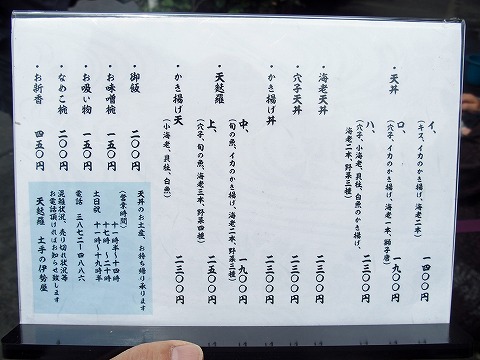 ・天丼
イ、
(キス、イカのかき揚げ、海老二本)
一四〇〇円
ロ、
(穴子、イカのかき揚げ、海老一本、獅子唐)
一九〇〇円
ハ、
(穴子、小海老、貝柱、白魚のかき揚げ、
海老二本、野菜三種)
二三〇〇円
・海老天丼
二三〇〇円
・穴子天丼
二三〇〇円
・かき揚げ丼
二三〇〇円
・天麩羅
中、
(旬の魚、イカのかき揚げ、海老二本、野菜三種)
一九〇〇円
上、
(穴子、旬の魚、海老三本、野菜四種)
二五〇〇円
・かき揚げ天
(小海老、貝柱、白魚)
二三〇〇円
・御飯
二〇〇円
・お味噌椀
一五〇円
・お吸い物
一五〇円
・なめこ椀
二〇〇円
・お新香
四五〇円
天丼のお土産、お持ち帰り承ります
(営業時間)
十一時半〜十四時
十七時〜二十時
土日祝 十一時〜十九時半
電話 三八七二ー四八八六
混雑状況、売り切れ状況等
お電話頂ければお知らせ致します
天麩羅 土手の伊勢屋